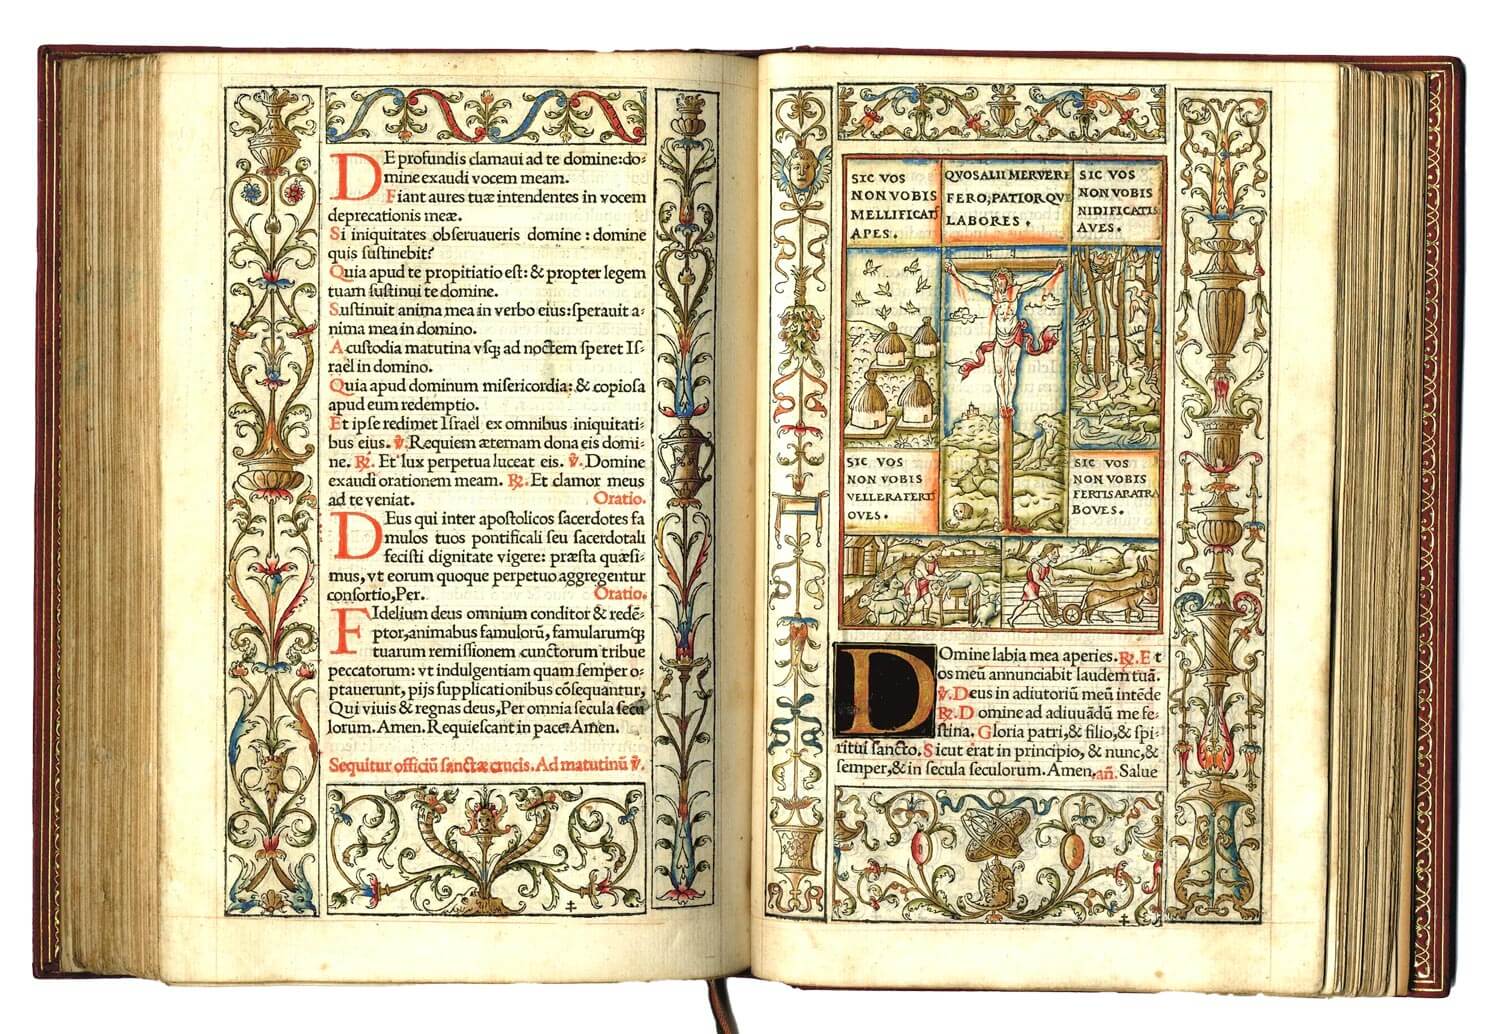 DE profundis clamaui ad te domine:do-
mine exaudi vocem meam.
Fiant aures tuæ intendentes in vocem
deprecationis meæ.
Si iniquitates obseruaueris domine : domine
quis sustinebit?
Quia apud te propitiatio est: & propter legem
tuam sustinui te domine.
Sustinuit anima mea in verbo eius:sperauit a-
nima mea in domino.
A custodia matutina vsq; ad noctem speret Is-
rael in domino.
Quia apud dominum misericordia: & copiosa
apud eum redemptio.
Et ipse redimet Israel ex omnibus iniquitati-
bus eius. ℣. Requiem æternam dona eis domi-
ne. ℞. Et lux perpetua luceat eis. ℣. Domine
exaudi orationem meam. ℞. Et clamor meus
ad te veniat. Oratio.
DEus qui inter apostolicos sacerdotes fa
mulos tuos pontificali seu sacerdotali
fecisti dignitate vigere: præsta quæsu-
mus, vt eorum quoque perpetuo aggregentur
consortio, Per. Oratio.
FIdelium deus omnium conditor & redē-
ptor, animabus famulorū, famularumq;
tuarum remissionem cunctorum tribue
peccatorum: vt indulgentiam quam semper o-
ptauerunt, pijs supplicationibus cōsequantur,
Qui viuis & regnas deus, Per omnia secula secu
lorum. Amen. Requiescant in pace. Amen.
Sequitur officiū sanctæ crucis. Ad matutinū ℣.
SIC VOS
NON VOBIS
MELLIFICATIS
APES.
QVOS ALII MERVERE
FERO, PATIOR QVE
LABORES.
SIC VOS
NON VOBIS
NIDIFICATIS
AVES.
SIC VOS
NON VOBIS
VELLERA FERTIS
OVES.
SIC VOS
NON VOBIS
FERTIS ARATRA
BOVES.
DOmine labia mea aperies. ℞. Et
os meū annunciabit laudem tuā.
℣. Deus in adiutoriū meū intēde
℞. Domine ad adiuuādū me fe-
stina. Gloria patri, & filio, & spi-
ritui sancto. Sicut erat in principio, & nunc, &
semper, & in secula seculorum. Amen. an̄. Salue